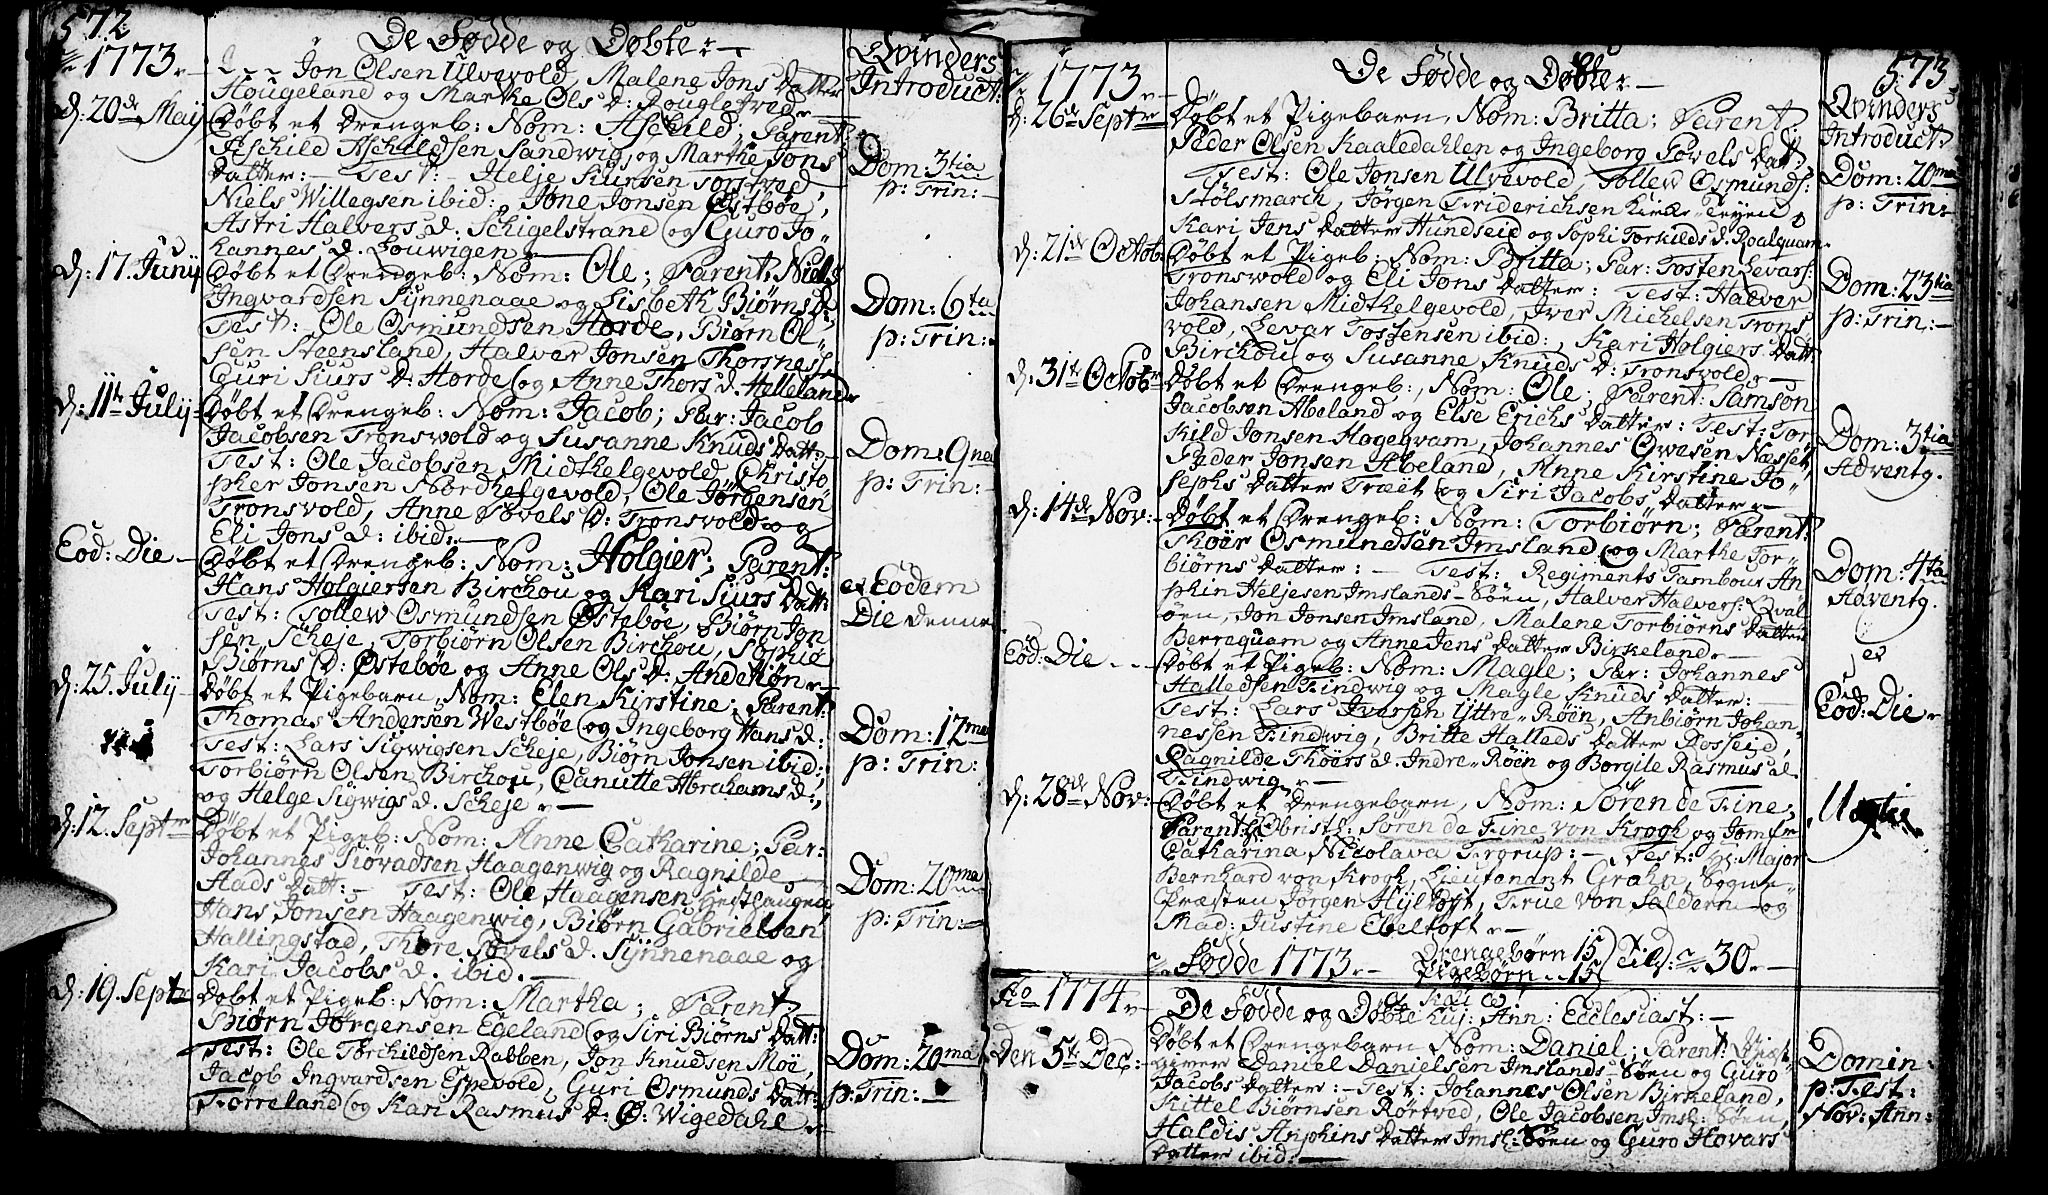 572
1773
De Fødde og Døbte:
Qvinders
Introduct:
Jon Olsen Ulvevold, Malene Jons Datter
Hougeland og Marthe Ols D:
d: 20de May
Døbt et Drengeb: Nom: Aschild; Parent:
Aschild Aschildsen Sandwig, og Marthe Jons
Datter: Test: Helje Siursen Torstved,
Niels Willegsen ibid:, Jone Jonsen Østbøe,
Astri Halvers d. Schigelstrand og Guro Jo-
hannes d. Louwigen
Dom: 3tia
p: Trin:
d: 17. Juny
Døbt et Drengeb: Nom: Ole; Parent: Niels
Ingvardsen Synnenaae og Lisbeth Biørns D:
Test: Ole Osmundsen Horde, Biørn Ol-
sen Steensland, Halver Jonsen Thorsnes,
Guri Siurs D: Horde og Anne Thors d. Helleland
Dom: 6ta
p: Trin:
d: 11te July
Døbt et Drengeb: Nom: Jacob; Par: Jacob
Jacobsen Tronswold og Susanne Knuds Datt:
Test: Ole Jacobsen Midthelgevold, Christo
pher Jonsen Nordhelgevold, Ole Jørgensen
Tronsvold, Anne Povels D: Tronsvold og
Eli Jons d: ibid:
Dom: 9na
p: Trin:
Eod: Die
Døbt et Drengeb: Nom: Holgier; Parent:
Hans Holgiersen Birchou og Kari Siurs Datt:
Test: Tollew Osmundsen Østebøe, Biørn Jon
sen Scheje, Torbiørn Olsen Birchou, Sophie
Biørns D: Østebøe og Anne Ols D:
et Eodem
Die denne
d: 25. July
Døbt et Pigebarn, Nom: Elen Kirstine; Parent:
Thomas Andersen Westbøe og Ingeborg Hans d:
Test: Lars Sigwigsen Scheje, Biørn Jonsen ibid:,
Torbiørn Olsen Birchou, Canutte Abrahams d:,
og Helge Sigwigs d. Scheje
Dom: 12ma
p: Trin:
d: 12. Septr
Døbt et Pigeb: Nom: Anne Catharine; Par:
Johannes Siovadsen Haagenwig og Ragnilde
Hads Datt: Test: Ole Haagensen
Hans Jonsen Haagenwig, Biørn Gabrielsen
Hallingstad, Thore Povels d. Synnenaae og
Kari Jacobs d. ibid.
Dom: 20ma
p: Trin:
d: 19. Septr
Døbt et Pigeb: Nom: Martha; Parent:
Biørn Jørgensen Egeland og Siri Biørns Datt:
Test: Ole Torchildsen Rabben, Jon Knudsen Moe,
Jacob Ingvardsen Espevold, Guri Osmunds Datt:
Førreland og Kari Rasmus D: Ø: Wigedahl
Dom: 20ma
p: Trin:
573
1773
De Fødde og Døbte
Qvinders
Introduct:
d: 26de Septr
Døbt et Pigebarn, Nom: Britta; Parent:
Peder Olsen Kaaledahlen og Ingeborg Povels Datt:
Test: Ole Jonsen Ulvevold, Tollew Osmunds:
Stølsmarch, Jørgen Friderichsen
Kari Jens Datter Hundseid og Sophi Torkilds d. Roalquam
Dom: 20ma
p: Trin:
d: 21de Octob:
Døbt et Pigeb: Nom: Britta; Par: Tosten Levars:
Tronswold og Eli Jons Datter: Test: Halver
Johansen Midthelgevold, Iver Michelsen Trons
vold, Levar Tostensen ibid:, Kari Holgiers Datt:
Birchou og Susanne Knuds D: Tronsvold
Dom: 23tia
p: Trin:
d: 31te Octobr
Døbt et Drengeb:, Nom: Ole; Parent: Samson
Jacobsen Abeland og Else Erichs Datter: Test: Tor
kild Jonsen Hageqvam, Johannes Owesen Næsset,
Peder Jonsen Abeland, Anne Kirstine Jo-
sephs Datter Træet og Siri Jacobs Datter
Dom: 3tia
Adventg.
d: 14de Nov:
Døbt et Drengeb: Nom: Torbiørn; Parent:
Thoër Osmundsen Imsland og Marthe Tor-
biørns Datter: Test: Regiments Tambour An
phin Heljesen Imslands-Søen, Halver Halvers: Qval
øen, Jon Jonsen Imsland, Malene Torbiørns Datter
Berrequam og Anne Jens Datter Birkeland
Dom: 4ta
Adventg.
Eod: Die
Døbt et Pigeb: Nom: Magle; Par: Johannes
Halledsen Findwig og Magle Knuds Datter:
Test: Lars Iversen Yttre-Røen, Anbiørn Johan-
nessen Findwig, Britte Halleds Datter Rosseid,
Ragnilde Thoers d. Indre-Røen og Borgile Rasmus d.
Findwig
et
Eod: Die
d: 28de Nov:
Døbt et Drengebarn, Nom: Søren de Fine,
Parent: Obristl: Søren de Fine von Krogh og Jomfr
Catharina Nicolava Frgrup: Test: Hr Major
Bernhard von Krogh, Lieutenant Grahn, Sogne-
Præsten Jørgen Hyltoft, Frue von Saldern og
Mad: Justine Ebeltoft
Fødde 1773
Drengebørn 15
Pigebørn 15
Tils: 30
Ao 1774
De Fødde og Døbte huj: Ann: Ecclesiast:
Den 5te Dec:
Døbt et Drengebarn Nom: Daniel; Parent:
Daniel Danielsen Imslands-Søen og Guro
Jacobs Datter: Test: Johannes Olsen Birkeland,
Kittel Biørnsen Rørtved, Ole Jacobsen Imsl: Søen,
Haldis Anphins Datter Imsl: Søen og Guro Hovars
Datter ibid:
Domin
p: Fest:
Nov: Ann: